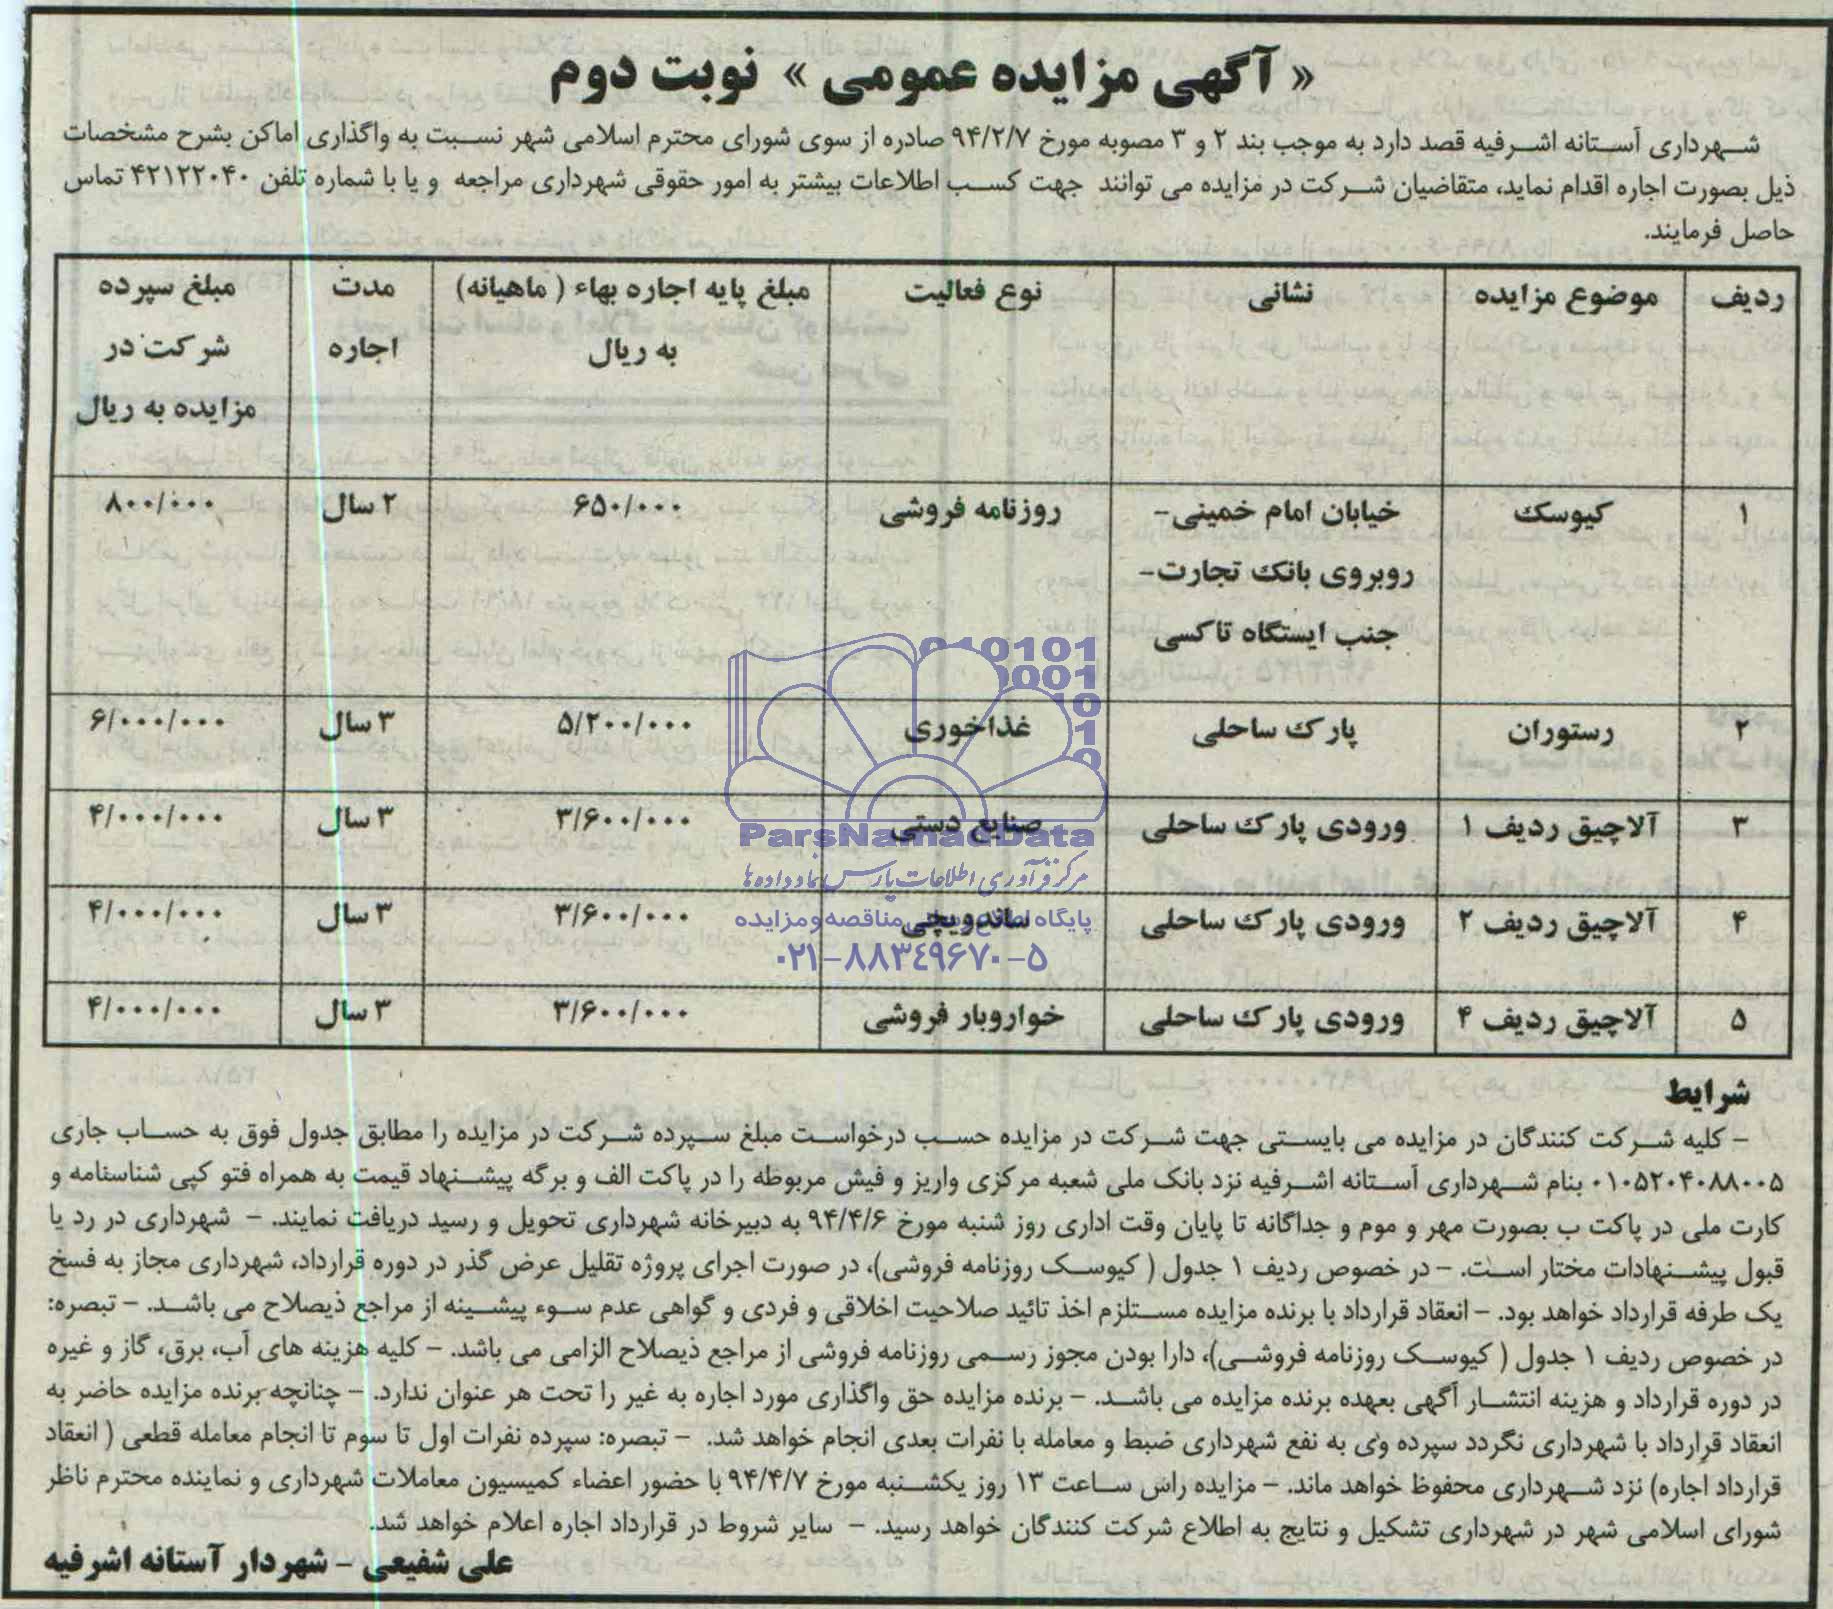 « آگهی مزایده عمومی » نوبت دوم
شهرداری آستانه اشرفیه قصد دارد به موجب بند ۲ و ۳ مصوبه مورخ ۹۴/۲/۷ صادره از سوی شورای محترم اسلامی شهر نسبت به واگذاری اماکن بشرح مشخصات
ذیل بصورت اجاره اقدام نماید، متقاضیان شرکت در مزایده می توانند جهت کسب اطلاعات بیشتر به امور حقوقی شهرداری مراجعه و یا با شماره تلفن ۴۲۱۲۲۰۴۰ تماس
حاصل فرمایند.
ردیف موضوع مزایده نشانی نوع فعالیت مبلغ پایه اجاره بهاء ( ماهیانه) مدت مبلغ سپرده
به ریال اجاره شرکت در
مزایده به ریال
۱ کیوسک خیابان امام خمینی- روزنامه فروشی ۶۵۰/۰۰۰ ۲ سال ۸۰۰/۰۰۰
روبروی بانک تجارت-
جنب ایستگاه تاکسی
۲ رستوران پارک ساحلی غذاخوری ۵/۲۰۰/۰۰۰ ۳ سال ۶/۰۰۰/۰۰۰
۳ آلاچیق ردیف ۱ ورودی پارک ساحلی صنایع دستی ۳/۶۰۰/۰۰۰ ۳ سال ۴/۰۰۰/۰۰۰
۴ آلاچیق ردیف ۲ ورودی پارک ساحلی ساندویچی ۳/۶۰۰/۰۰۰ ۳ سال ۴/۰۰۰/۰۰۰
۵ آلاچیق ردیف ۴ ورودی پارک ساحلی خواروبار فروشی ۳/۶۰۰/۰۰۰ ۳ سال ۴/۰۰۰/۰۰۰
ParsNamadData
مرکز فرآوری اطلاعات پارس نماد داده ها
پایگاه اطلاع رسانی مناقصه و مزایده
۰۲۱-۸۸۳۴۹۶۷۰-۵
شرایط
- کلیه شرکت کنندگان در مزایده می بایستی جهت شرکت در مزایده حسب درخواست مبلغ سپرده شرکت در مزایده را مطابق جدول فوق به حساب جاری
۰۱۰۵۲۰۴۰۸۸۰۰۵ بنام شهرداری آستانه اشرفیه نزد بانک ملی شعبه مرکزی واریز و فیش مربوطه را در پاکت الف و برگه پیشنهاد قیمت به همراه فتو کپی شناسنامه و
کارت ملی در پاکت ب بصورت مهر و موم و جداگانه تا پایان وقت اداری روز شنبه مورخ ۹۴/۴/۶ به دبیرخانه شهرداری تحویل و رسید دریافت نمایند. - شهرداری در رد یا
قبول پیشنهادات مختار است. - در خصوص ردیف ۱ جدول ( کیوسک روزنامه فروشی)، در صورت اجرای پروژه تقلیل عرض گذر در دوره قرارداد، شهرداری مجاز به فسخ
یک طرفه قرارداد خواهد بود. - انعقاد قرارداد با برنده مزایده مستلزم اخذ تائید صلاحیت اخلاقی و فردی و گواهی عدم سوء پیشینه از مراجع ذیصلاح می باشد. - تبصره:
در خصوص ردیف ۱ جدول ( کیوسک روزنامه فروشی)، دارا بودن مجوز رسمی روزنامه فروشی از مراجع ذیصلاح الزامی می باشد. - کلیه هزینه های آب، برق، گاز و غیره
در دوره قرارداد و هزینه انتشار آگهی بعهده برنده مزایده می باشد. - برنده مزایده حق واگذاری مورد اجاره به غیر را تحت هر عنوان ندارد. - چنانچه برنده مزایده حاضر به
انعقاد قرارداد با شهرداری نگردد سپرده وی به نفع شهرداری ضبط و معامله با نفرات بعدی انجام خواهد شد. - تبصره: سپرده نفرات اول تا سوم تا انجام معامله قطعی ( انعقاد
قرارداد اجاره) نزد شهرداری محفوظ خواهد ماند. - مزایده راس ساعت ۱۳ روز یکشنبه مورخ ۹۴/۴/۷ با حضور اعضاء کمیسیون معاملات شهرداری و نماینده محترم ناظر
شورای اسلامی شهر در شهرداری تشکیل و نتایج به اطلاع شرکت کنندگان خواهد رسید. - سایر شروط در قرارداد اجاره اعلام خواهد شد.
علی شفیعی - شهردار آستانه اشرفیه